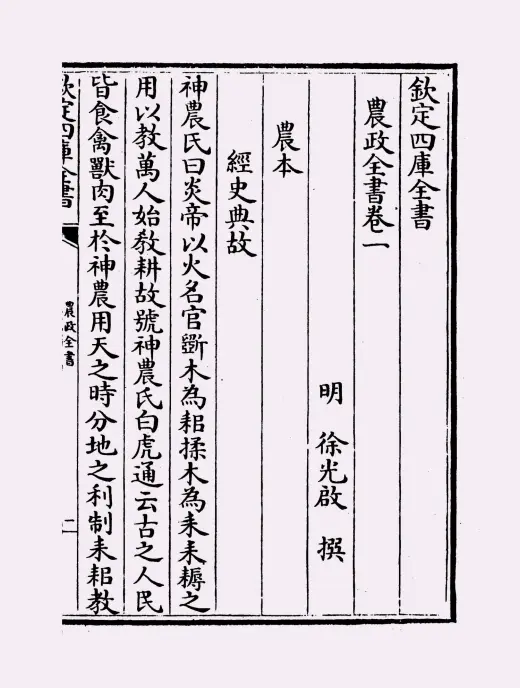 欽定四庫全書
農政全書卷一
明 徐光啟 撰
農本
經史典故
神農氏曰炎帝以火名官斲木為耜揉木為耒耒耨之
用以教萬人始教耕故號神農氏白虎通云古之人民
皆食禽獸肉至於神農用天之時分地之利制耒耜教
欽定四庫全書
農政全書